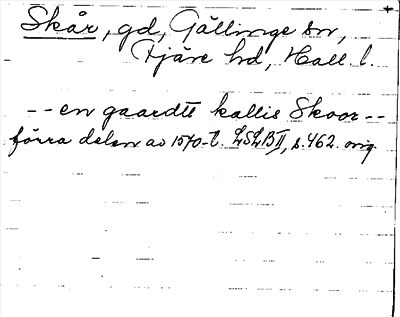 Skår, gd, Gällinge sn,
Fjäre hd, Hall. l.
-- en gaardtt kallis Skoor --
förra delen av 1570-t. LSLB II, s. 462. orig.